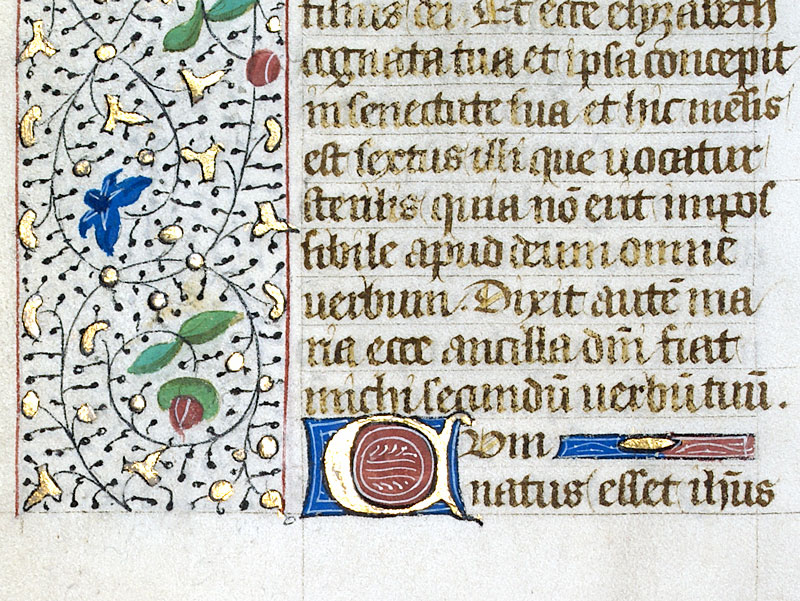 filius dei. Et ecce elyzabeth
cognata tua et ipsa concepit
in senectute sua et hic mensis
est sextus illi que uocatur
sterilis quia nō erit impos
sibile apud deum omne
uerbum. Dixit autē ma
ria ecce ancilla dn̄i fiat
michi secundū uerbū tuū.
Cum
natus esset ih̄us